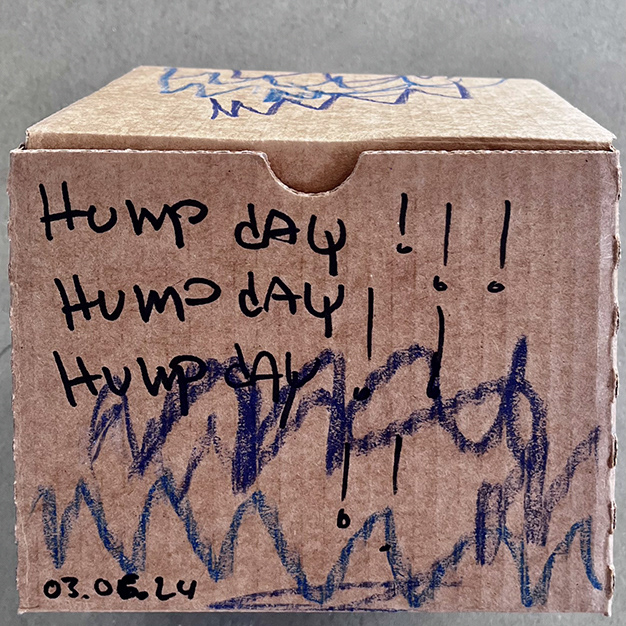 Hump dAy !!!
Hump dAy !!
Hump dAy !!
03.06.24